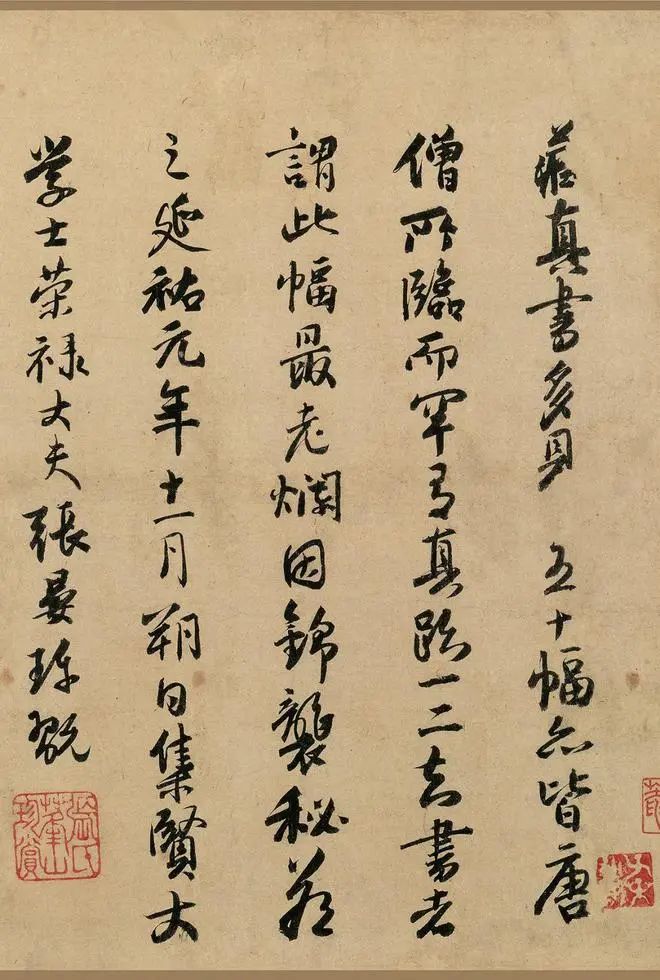 藏真書多見五十幅皆唐
僧所臨而罕有真跡一二知書者
謂此幅最老爛因錦襲秘藏
之延祐元年十一月朔日集賢大
學士榮禄大夫張晏珍翫